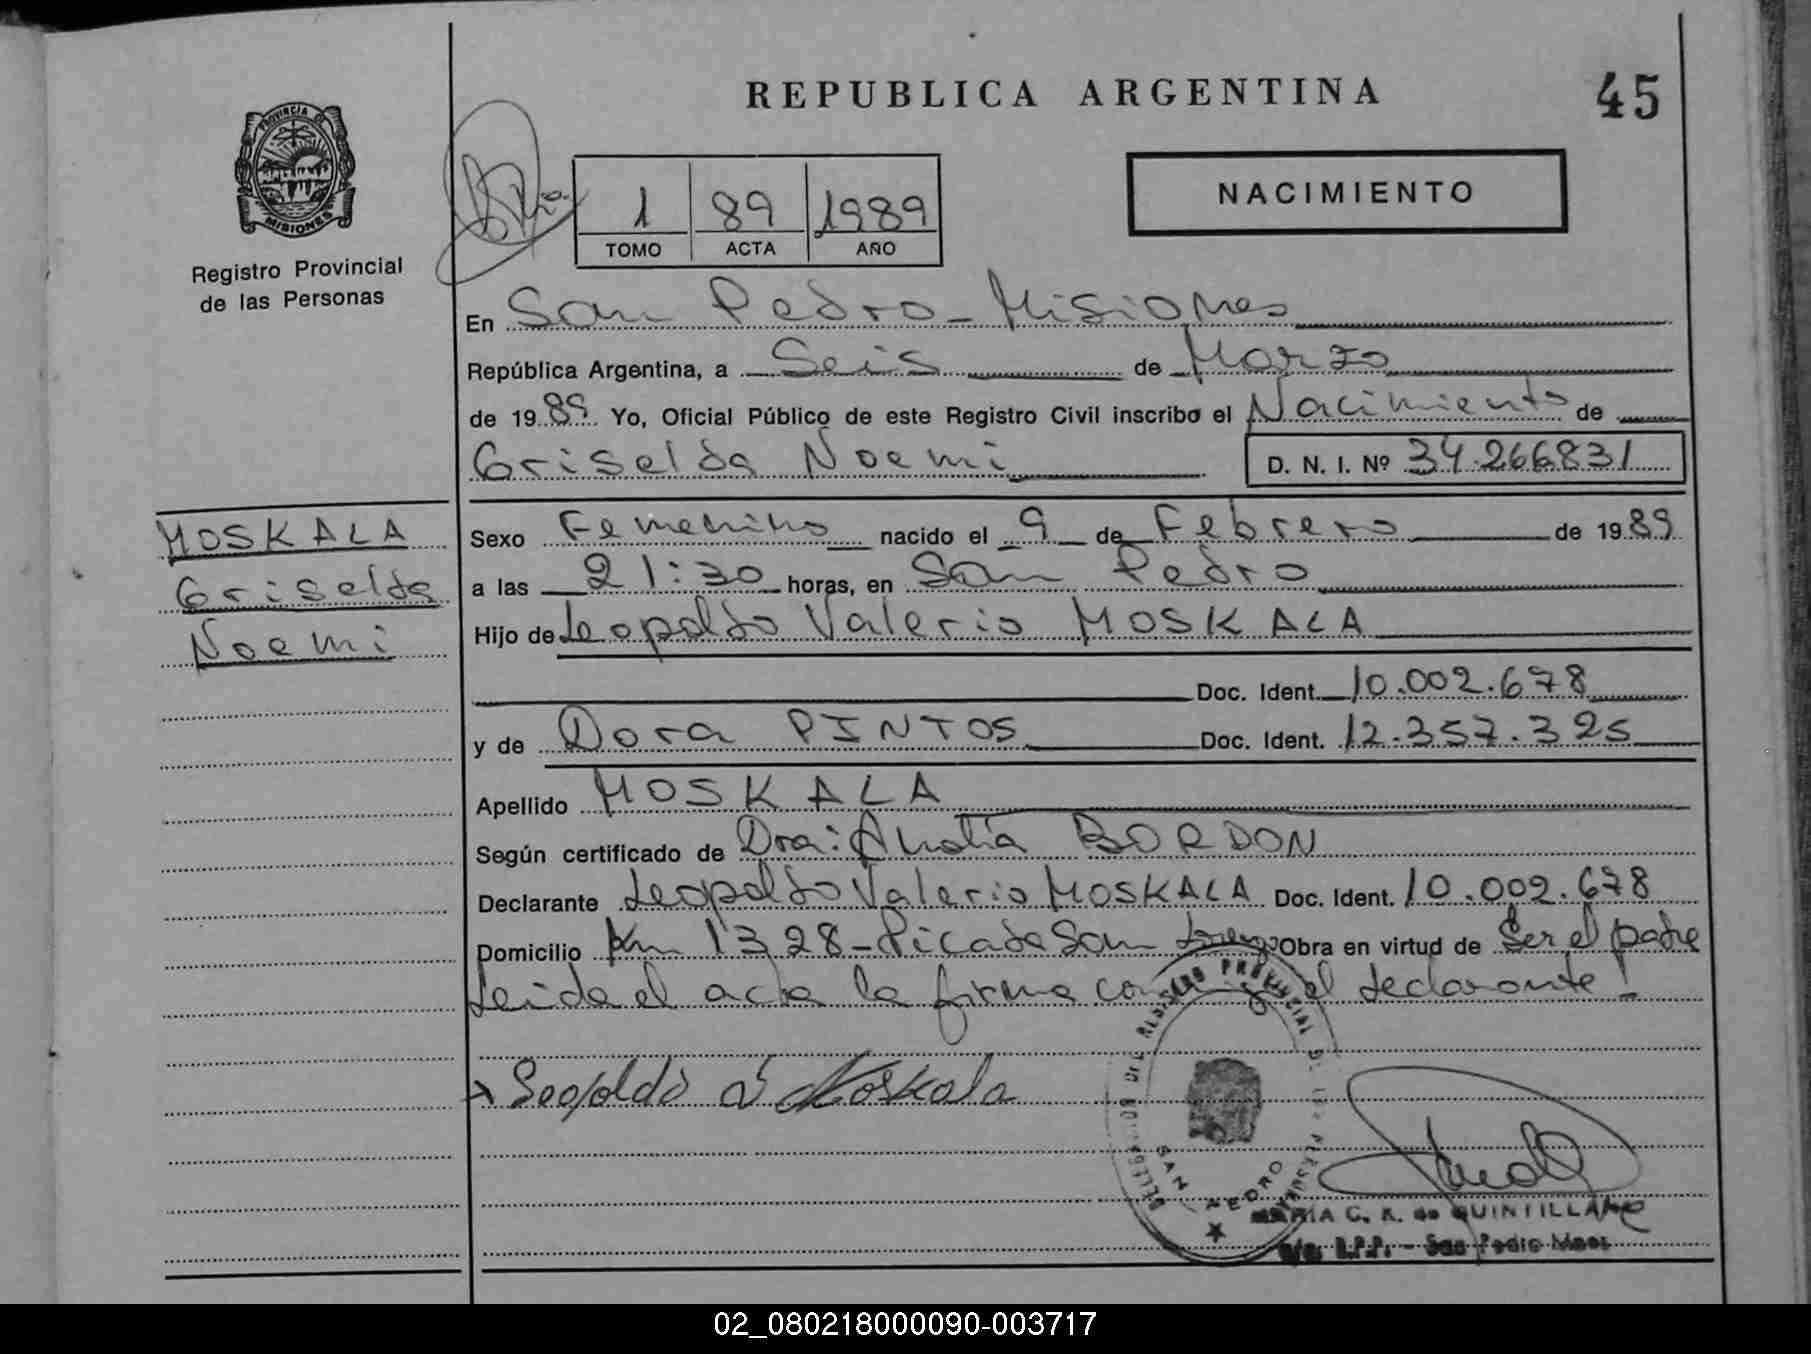 REPUBLICA ARGENTINA
45
PROVINCIA DE
MISIONES
Registro Provincial
de las Personas
1 89 1989
TOMO ACTA AÑO
NACIMIENTO
En San Pedro - Misiones
República Argentina, a Seis de Marzo
de 1989 Yo, Oficial Público de este Registro Civil inscribo el Nacimiento de
Griselda Noemi D. N. I. Nº 34.266831
MOSKALA
Griselda
Noemi
Sexo Femenino nacido el 9 de Febrero de 1989
a las 21:30 horas, en San Pedro
Hijo de Leopoldo Valerio MOSKALA
Doc. Ident. 10.002.678
y de Dora PINTOS Doc. Ident. 12.357.325
Apellido MOSKALA
Según certificado de Dra: Analía BORDON
Declarante Leopoldo Valerio MOSKALA Doc. Ident. 10.002.678
Domicilio Km 1328 - Picada San Obra en virtud de Ser el padre
Leida el acta la firma el declarante!
Leopoldo V Moskala
SAN PEDRO
MARIA C. K. de QUINTILLAN
R.P.P. - San Pedro Mnes.
02_080218000090-003717